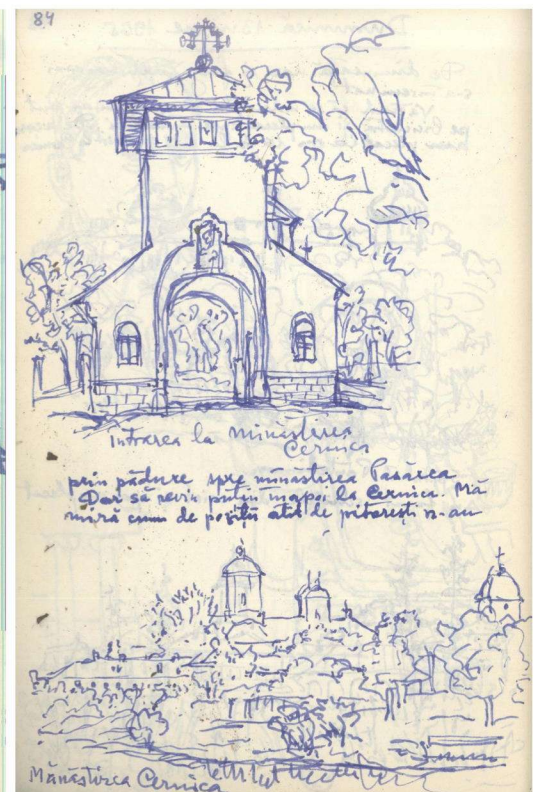 84
Intrarea la Mînăstirea
Cernica
prin pădure spre mînăstirea Pasărea.
Dar să revin puțin înapoi la Cernica. Mă
miră cum de poziții atît de pitorești n-au
Mănăstirea Cernica